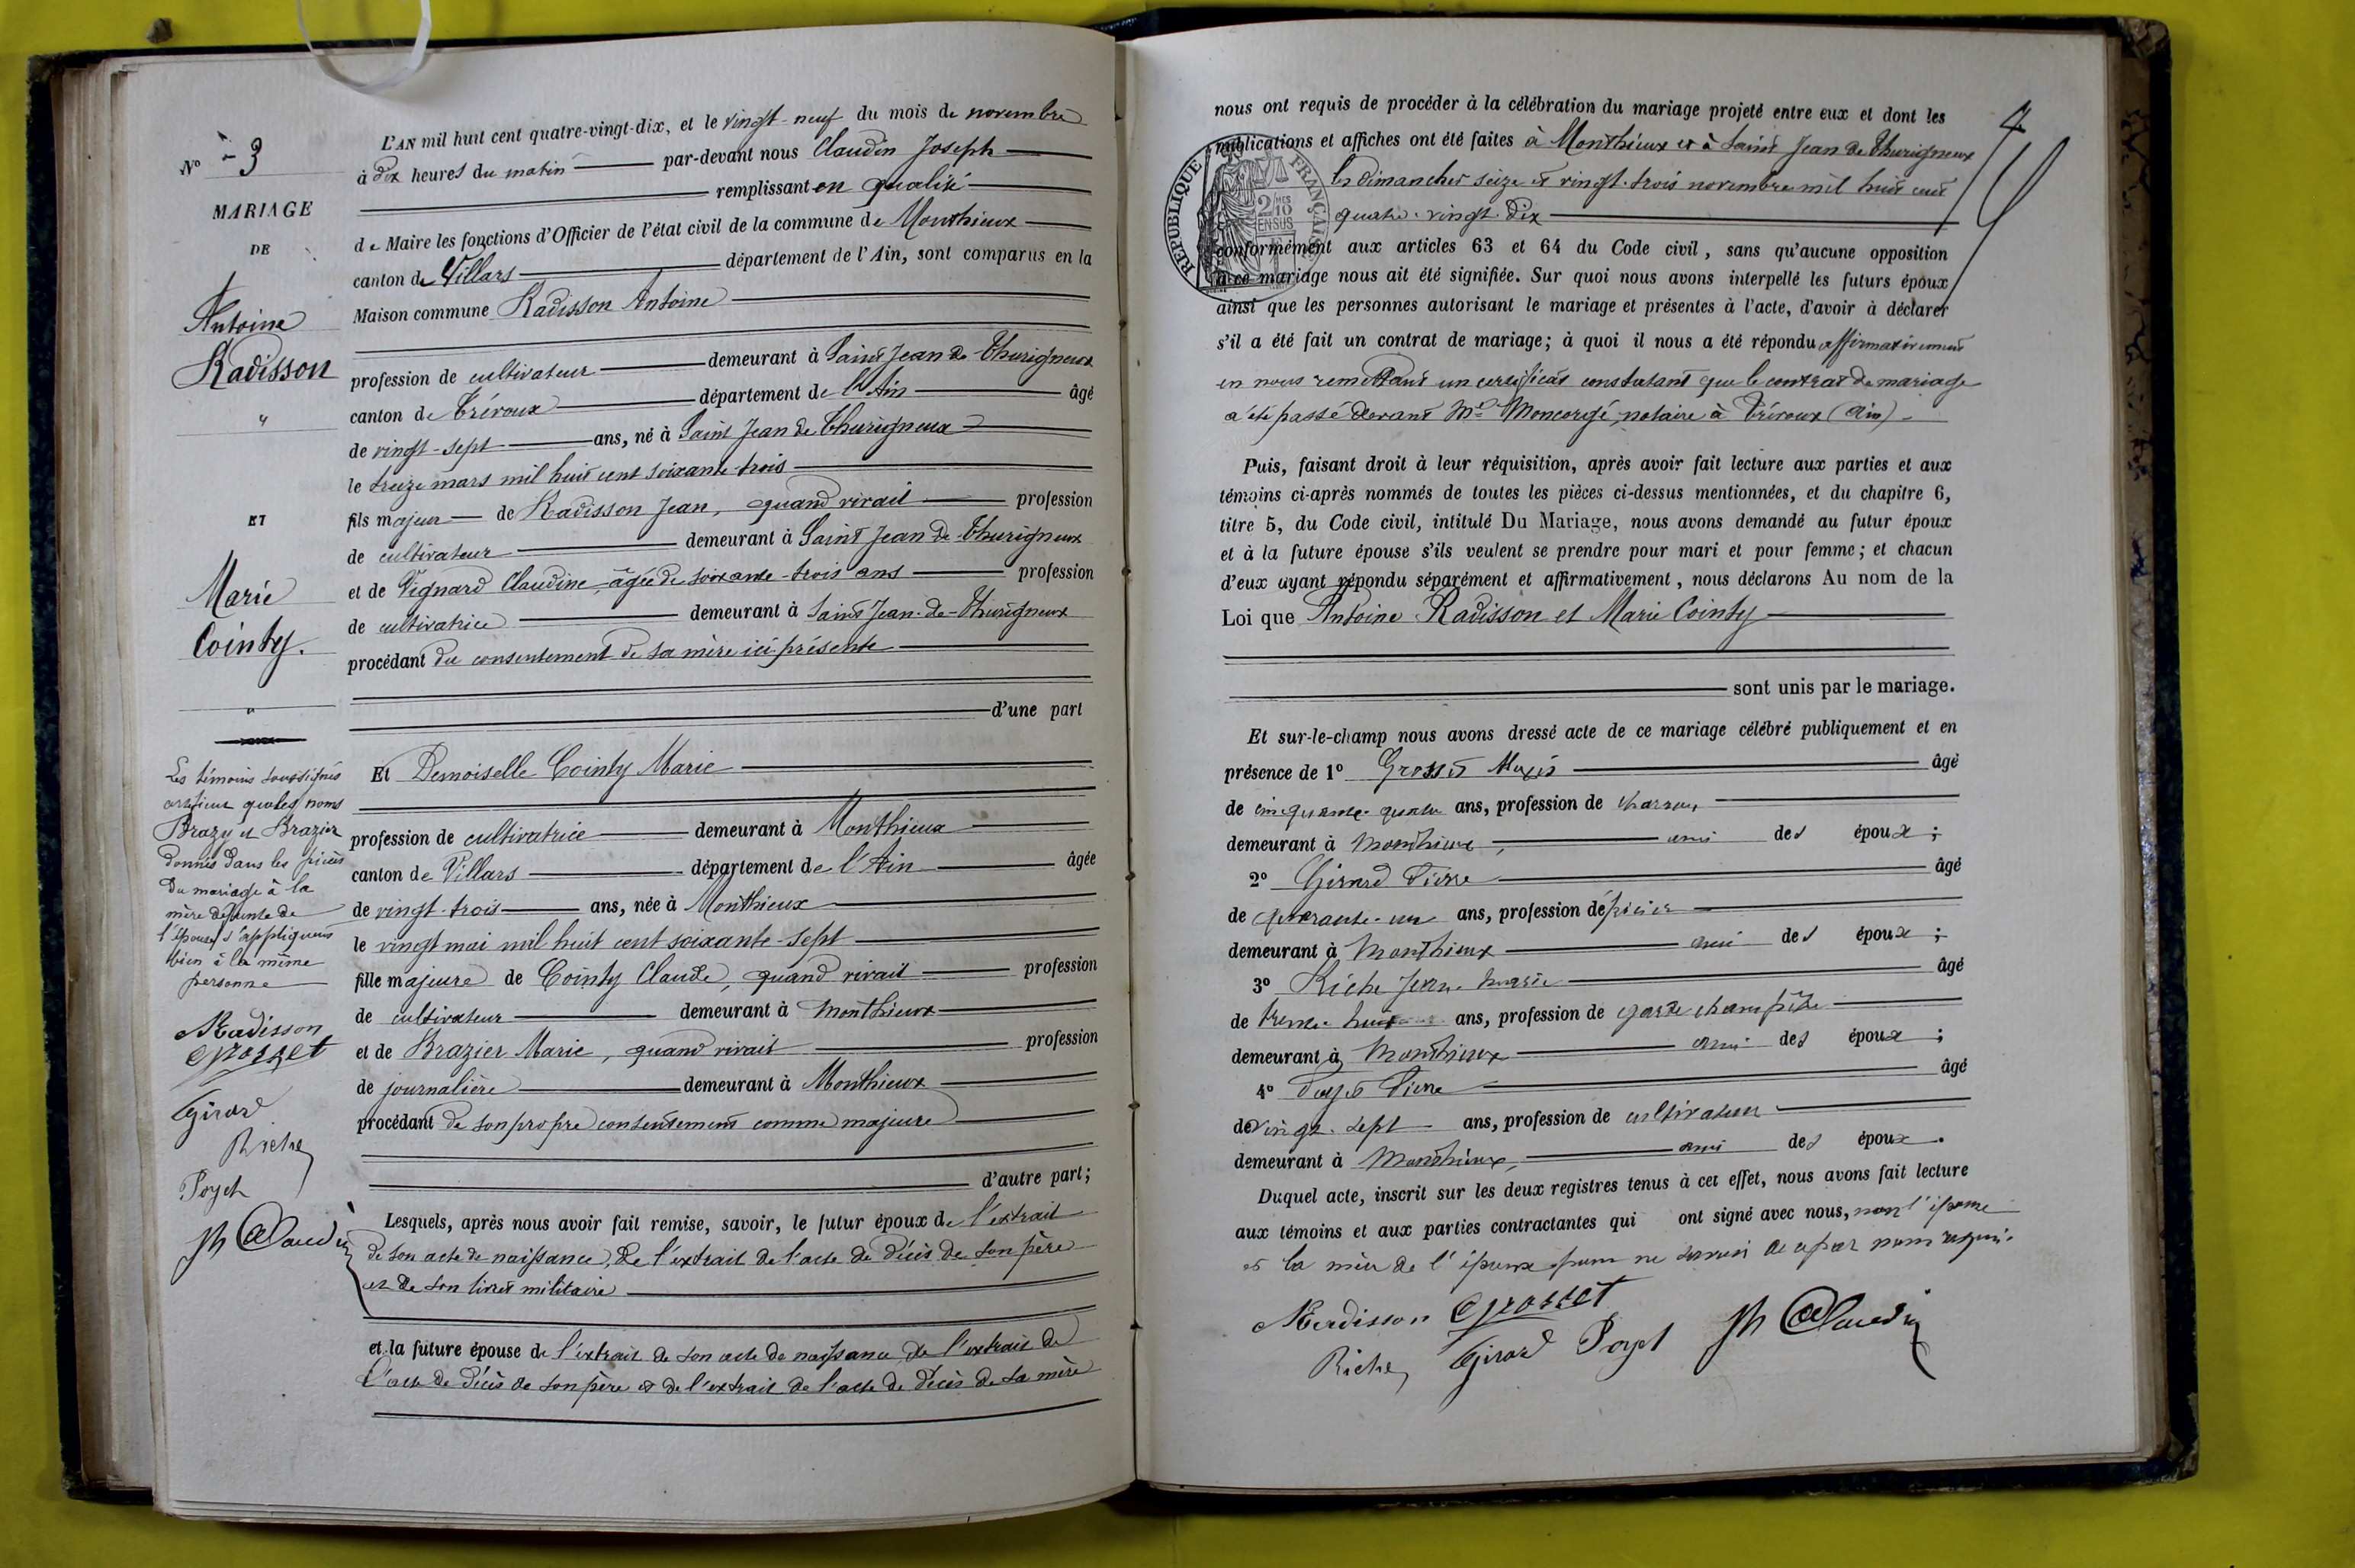 N° - 3
MARIAGE
DE
Antoine
Radisson
"
ET
Marie
Cointy.
"
Les témoins soussignés
certifient que les noms
Brazy et Brazier
donnés dans les pièces
du mariage à la
mère défunte de
l'épouse s'appliquent
bien à la même
personne
Radisson
Grosset
Girard
Riche
Poyet
Jh Claudin
L'AN mil huit cent quatre-vingt-dix, et le vingt-neuf du mois de novembre
à dix heures du matin par-devant nous Claudin Joseph
remplissant en qualité
de Maire les fonctions d'Officier de l'état civil de la commune de Monthieux
canton de Villars département de l'Ain, sont comparus en la
Maison commune Radisson Antoine
profession de cultivateur demeurant à Saint Jean de Thurigneux
canton de Trévoux département de l'Ain âgé
de vingt-sept ans, né à Saint Jean de Thurigneux
le treize mars mil huit cent soixante-trois
fils majeur de Radisson Jean, quand vivait profession
de cultivateur demeurant à Saint Jean de Thurigneux
et de Vignard Claudine, âgée de soixante-trois ans profession
de cultivatrice demeurant à Saint Jean-de-Thurigneux
procédant du consentement de sa mère ici présente
d'une part
Et Demoiselle Cointy Marie
profession de cultivatrice demeurant à Monthieux
canton de Villars département de l'Ain âgée
de vingt-trois ans, née à Monthieux
le vingt mai mil huit cent soixante-sept
fille majeure de Cointy Claude, quand vivait profession
de cultivateur demeurant à Monthieux
et de Brazier Marie, quand vivait profession
de journalière demeurant à Monthieux
procédant de son propre consentement comme majeure
d'autre part;
Lesquels, après nous avoir fait remise, savoir, le futur époux de l'extrait
de son acte de naissance, de l'extrait de l'acte de décès de son père
et de son livret militaire
et la future épouse de l'extrait de son acte de naissance de l'extrait de
l'acte de décès de son père et de l'extrait de l'acte de décès de sa mère
4
nous ont requis de procéder à la célébration du mariage projeté entre eux et dont les
publications et affiches ont été faites à Monthieux et à Saint Jean de Thurigneux
les dimanches seize et vingt-trois novembre mil huit cent
quatre-vingt-dix
RÉPUBLIQUE FRANÇAISE
2/10
EN SUS
conformément aux articles 63 et 64 du Code civil, sans qu'aucune opposition
à ce mariage nous ait été signifiée. Sur quoi nous avons interpellé les futurs époux
ainsi que les personnes autorisant le mariage et présentes à l'acte, d'avoir à déclarer
s'il a été fait un contrat de mariage; à quoi il nous a été répondu affirmativement
en nous remettant un certificat constatant que le contrat de mariage
a été passé devant Me Moncorgé, notaire à Trévoux (Ain)
Puis, faisant droit à leur réquisition, après avoir fait lecture aux parties et aux
témoins ci-après nommés de toutes les pièces ci-dessus mentionnées, et du chapitre 6,
titre 5, du Code civil, intitulé Du Mariage, nous avons demandé au futur époux
et à la future épouse s'ils veulent se prendre pour mari et pour femme; et chacun
d'eux ayant répondu séparément et affirmativement, nous déclarons Au nom de la
Loi que Antoine Radisson et Marie Cointy
sont unis par le mariage.
Et sur-le-champ nous avons dressé acte de ce mariage célébré publiquement et en
présence de 1° Grosset Alexis âgé
de cinquante-quatre ans, profession de charron
demeurant à Monthieux, ami des époux;
2° Girard Pierre âgé
de quarante-un ans, profession d'épicier
demeurant à Monthieux ami des époux;
3° Riche Jean-Marie âgé
de trente-huit ans, profession de garde champêtre
demeurant à Monthieux ami des époux;
4° Poyet Pierre âgé
de vingt-sept ans, profession de cultivateur
demeurant à Monthieux, ami des époux.
Duquel acte, inscrit sur les deux registres tenus à cet effet, nous avons fait lecture
aux témoins et aux parties contractantes qui ont signé avec nous, non l'épouse
et la mère de l'époux pour ne savoir de ce par nous requis.
Radisson Grosset
Riche Girard Poyet Jh Claudin